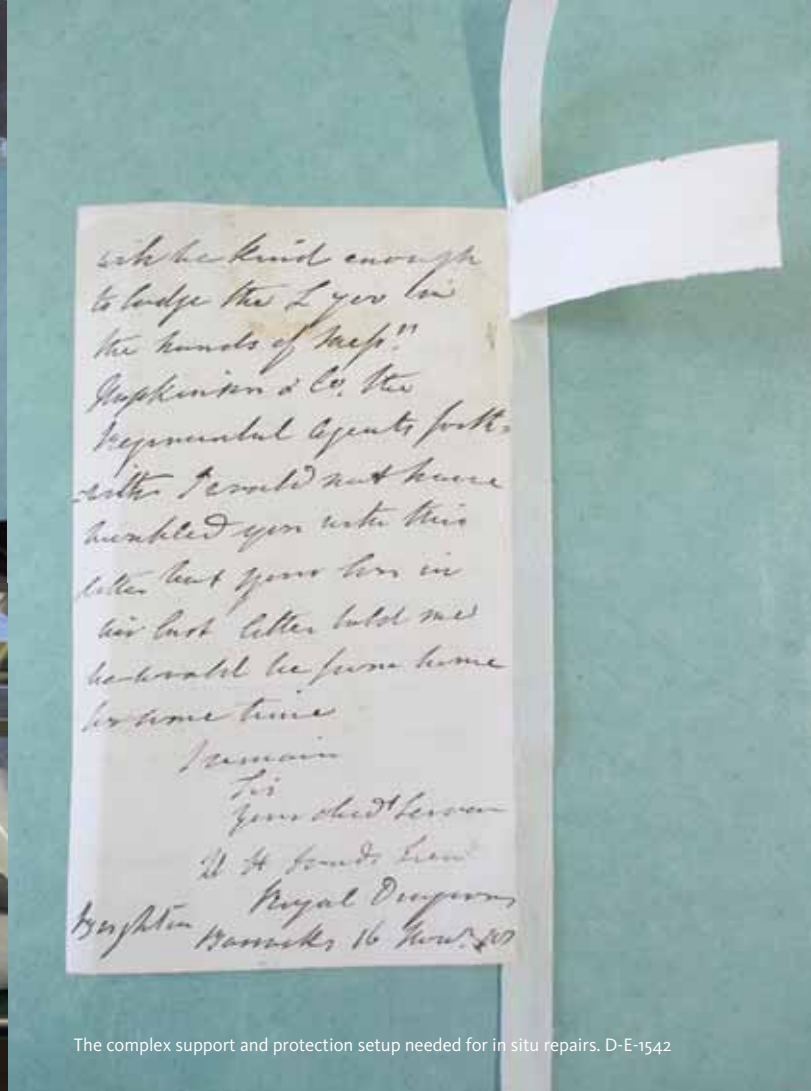 will be kind enough
to lodge the £ in
the hands of Mess.rs
Hopkinson & Co. the
Regimental Agents forth=
with I would not have
troubled you with this
letter but your Son in
his last letter told me
he would be from home
for some time
I remain
Sir
Your obed.t Servan
Lieu
Royal Dragoons
Brighton Barracks 16 Nov.r
The complex support and protection setup needed for in situ repairs. D-E-1542